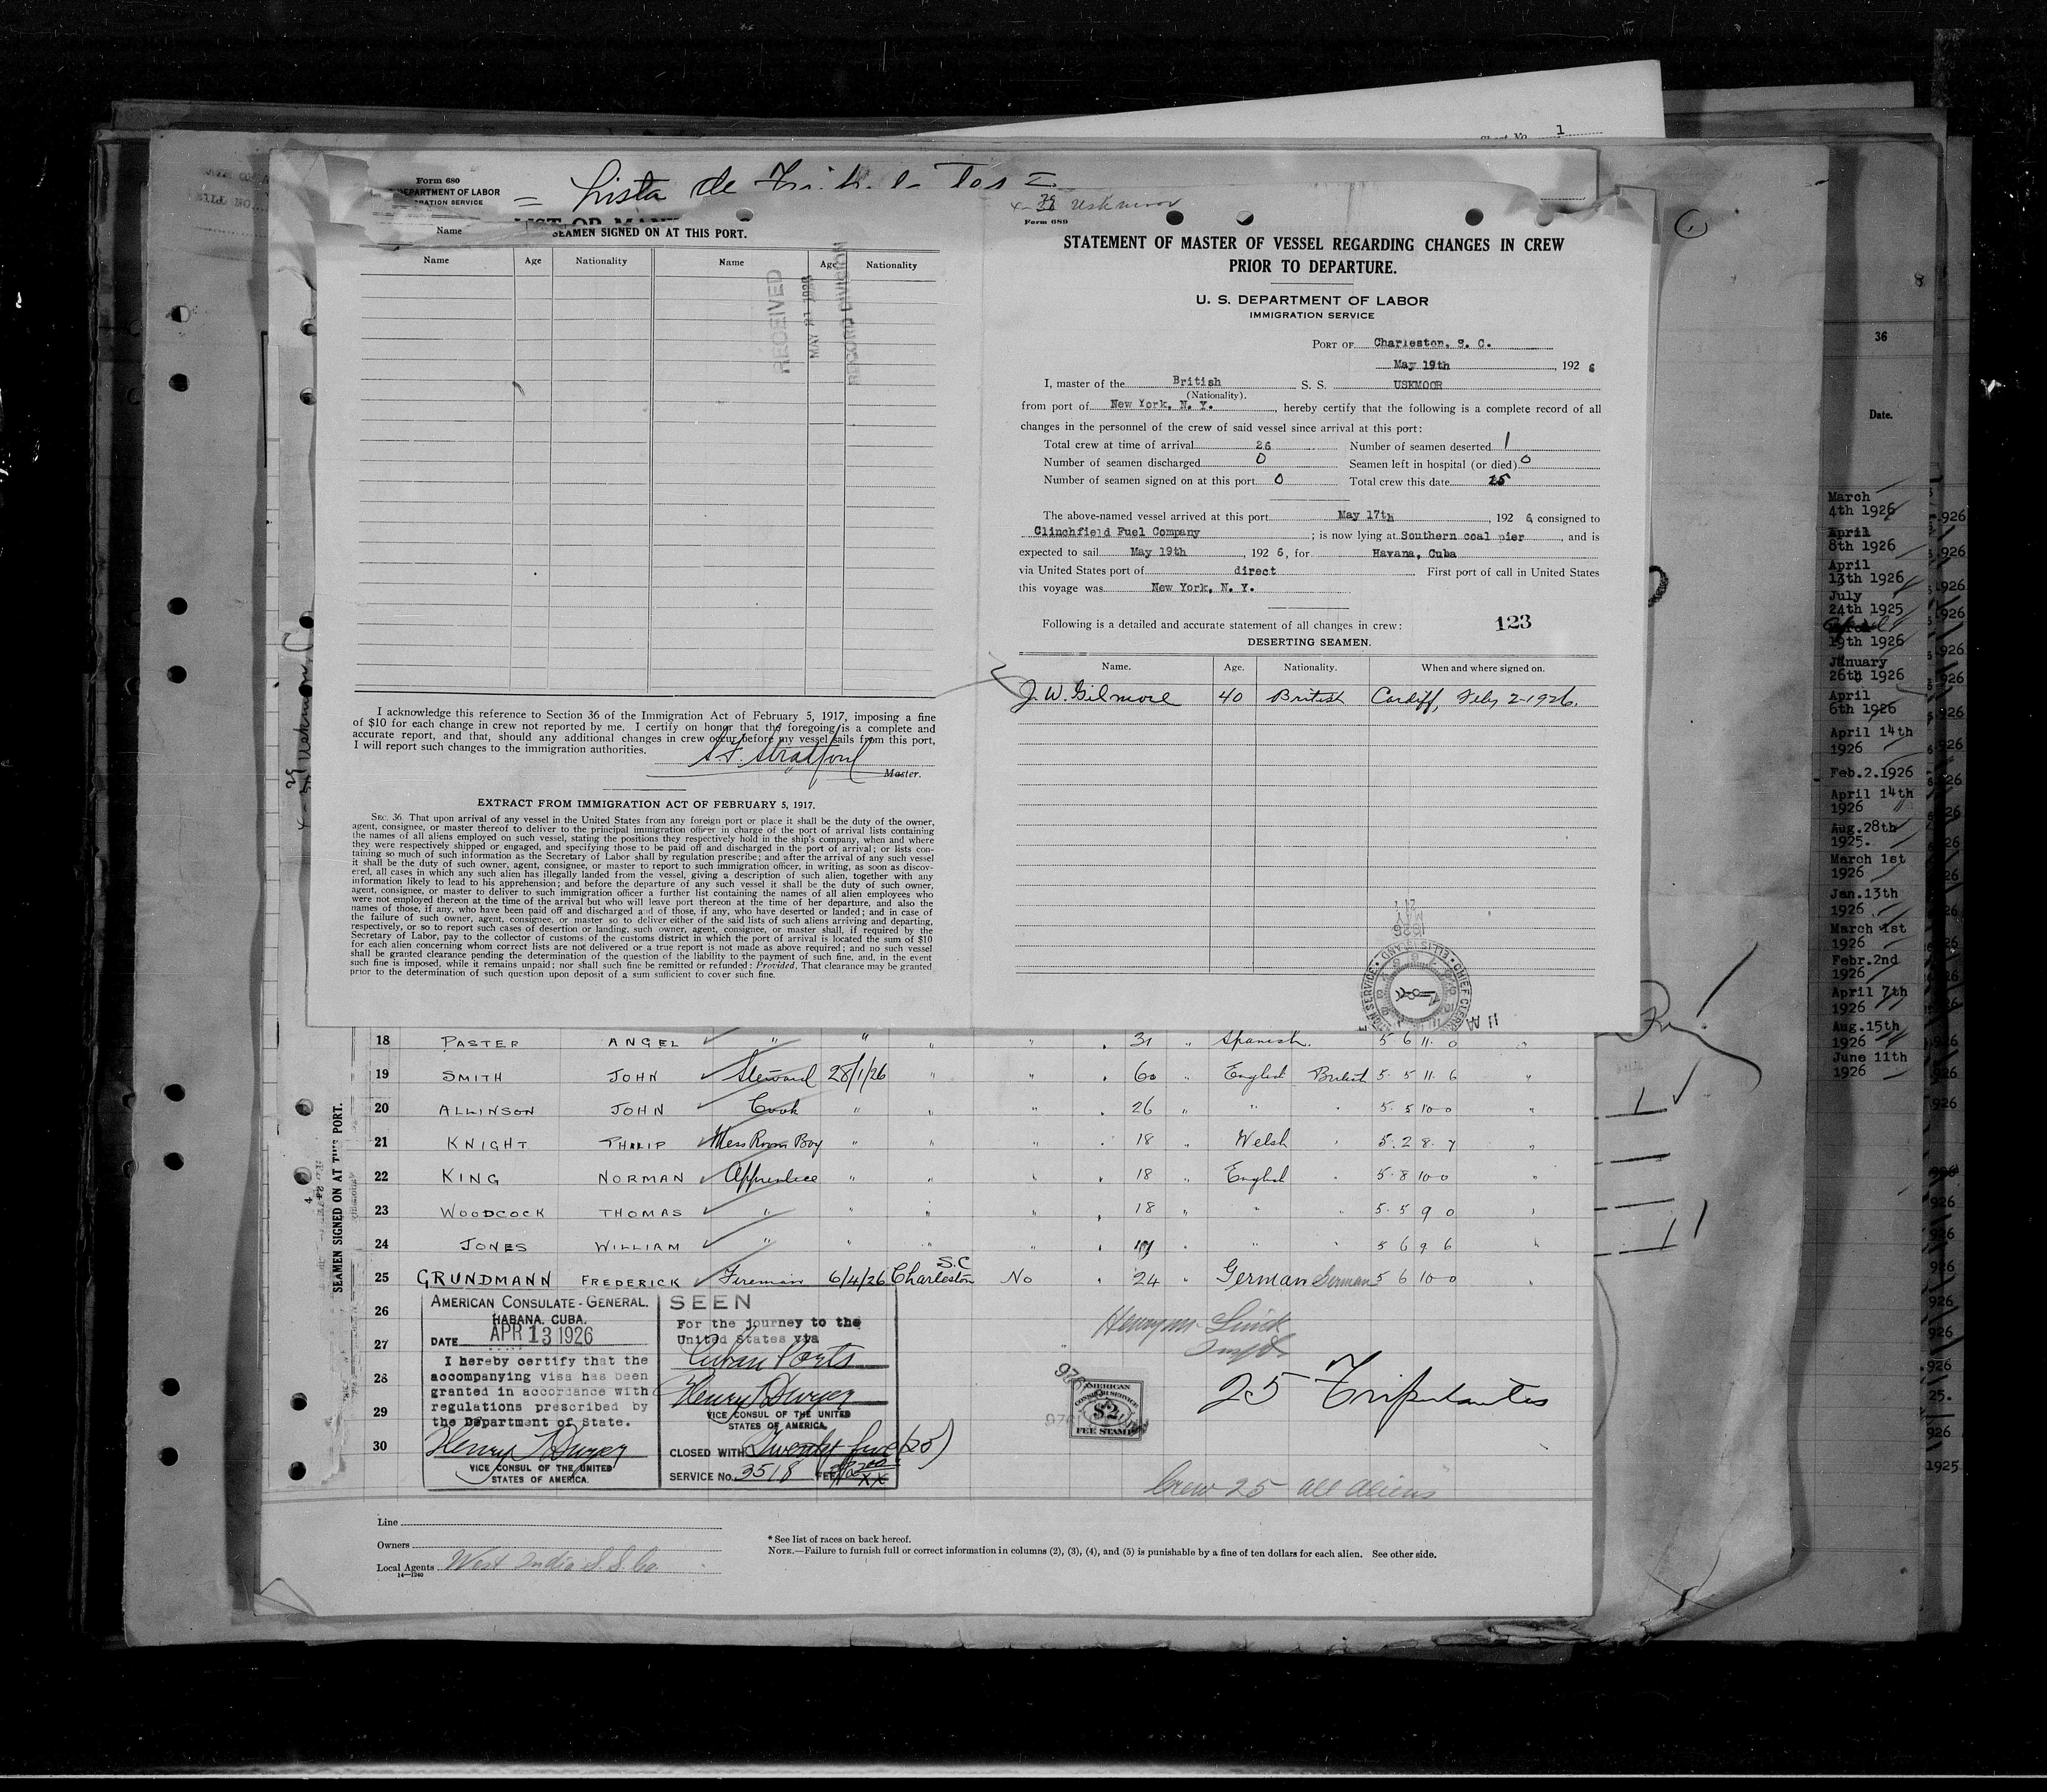 Sheet No. 1
Form 680
DEPARTMENT OF LABOR
= Lista de
Name
SEAMEN SIGNED ON AT THIS PORT.
Name Age Nationality Name Age Nationality
RECEIVED
MAY 21 1926
RECORD DIVISION
I acknowledge this reference to Section 36 of the Immigration Act of February 5, 1917, imposing a fine
of $10 for each change in crew not reported by me. I certify on honor that the foregoing is a complete and
accurate report, and that, should any additional changes in crew occur before my vessel sails from this port,
I will report such changes to the immigration authorities.
S.F. Stratford
Master.
EXTRACT FROM IMMIGRATION ACT OF FEBRUARY 5, 1917.
SEC. 36. That upon arrival of any vessel in the United States from any foreign port or place it shall be the duty of the owner,
agent, consignee, or master thereof to deliver to the principal immigration officer in charge of the port of arrival lists containing
the names of all aliens employed on such vessel, stating the positions they respectively hold in the ship's company, when and where
they were respectively shipped or engaged, and specifying those to be paid off and discharged in the port of arrival; or lists con-
taining so much of such information as the Secretary of Labor shall by regulation prescribe; and after the arrival of any such vessel
it shall be the duty of such owner, agent, consignee, or master to report to such immigration officer, in writing, as soon as discov-
ered, all cases in which any such alien has illegally landed from the vessel, giving a description of such alien, together with any
information likely to lead to his apprehension; and before the departure of any such vessel it shall be the duty of such owner,
agent, consignee, or master to deliver to such immigration officer a further list containing the names of all alien employees who
were not employed thereon at the time of the arrival but who will leave port thereon at the time of her departure, and also the
names of those, if any, who have been paid off and discharged and of those, if any, who have deserted or landed; and in case of
the failure of such owner, agent, consignee, or master so to deliver either of the said lists of such aliens arriving and departing,
respectively, or so to report such cases of desertion or landing, such owner, agent, consignee, or master shall, if required by the
Secretary of Labor, pay to the collector of customs of the customs district in which the port of arrival is located the sum of $10
for each alien concerning whom correct lists are not delivered or a true report is not made as above required; and no such vessel
shall be granted clearance pending the determination of the question of the liability to the payment of such fine, and, in the event
such fine is imposed, while it remains unpaid; nor shall such fine be remitted or refunded: Provided, That clearance may be granted
prior to the determination of such question upon deposit of a sum sufficient to cover such fine.
Uskmoor
Form 689
STATEMENT OF MASTER OF VESSEL REGARDING CHANGES IN CREW
PRIOR TO DEPARTURE.
U. S. DEPARTMENT OF LABOR
IMMIGRATION SERVICE
PORT OF Charleston, S. C.
May 19th, 1926
I, master of the British S. S. USKMOOR
(Nationality).
from port of New York, N. Y., hereby certify that the following is a complete record of all
changes in the personnel of the crew of said vessel since arrival at this port:
Total crew at time of arrival 26 Number of seamen deserted 1
Number of seamen discharged 0 Seamen left in hospital (or died) 0
Number of seamen signed on at this port 0 Total crew this date 25
The above-named vessel arrived at this port May 17th, 1926, consigned to
Clinchfield Fuel Company; is now lying at Southern coal pier, and is
expected to sail May 19th, 1926, for Havana, Cuba
via United States port of direct. First port of call in United States
this voyage was New York, N. Y.
Following is a detailed and accurate statement of all changes in crew: 123
DESERTING SEAMEN.
Name. Age. Nationality. When and where signed on.
J. W. Gilmore 40 British Cardiff, Feby 2-1926.
18 PASTER ANGEL " " " " 31 " Spanish. 5 6 11. 0
19 SMITH JOHN Steward 28/1/26 " " 60 " English British 5. 5 11. 6 "
20 ALLINSON JOHN Cook " " " 26 " " " 5. 5 10 0 "
21 KNIGHT PHILIP Mess Room Boy " " " 18 " Welsh " 5. 2 8. 7 "
22 KING NORMAN Apprentice " " " 18 " English " 5. 8 10 0 "
23 WOODCOCK THOMAS " " " " 18 " " " 5. 5 9 0 "
24 JONES WILLIAM " " " " " " " 5 6 9 6 "
25 GRUNDMANN FREDERICK Fireman 6/4/26 Charleston S.C No " 24 " German German 5 6 10 0 "
26
27
28
29
30
AMERICAN CONSULATE-GENERAL.
HABANA, CUBA.
DATE APR 13 1926
I hereby certify that the
accompanying visa has been
granted in accordance with
regulations prescribed by
the Department of State.
Henry T Dwyer
VICE CONSUL OF THE UNITED
STATES OF AMERICA.
SEEN
For the journey to the
United States via
Cuban Ports
Henry T Dwyer
VICE CONSUL OF THE UNITED
STATES OF AMERICA.
CLOSED WITH Twenty five (25)
SERVICE No. 3518 FEE
AMERICAN
CONSULAR SERVICE
$2
FEE STAMP
25 Tripulantes
Crew 25 all aliens
Line
Owners
Local Agents West India S S Co
14—1240
* See list of races on back hereof.
NOTE.—Failure to furnish full or correct information in columns (2), (3), (4), and (5) is punishable by a fine of ten dollars for each alien. See other side.
SEAMEN SIGNED ON AT THIS PORT.
36
Date.
March
4th 1926
April
8th 1926
April
13th 1926
July
24th 1925
19th 1926
January
26th 1926
April
6th 1926
April 14th
1926
Feb.2.1926
April 14th
1926
Aug.28th
1925.
March 1st
1926
Jan.13th
1926
March 1st
1926
Febr.2nd
1926
April 7th
1926
Aug.15th
1926
June 11th
1926